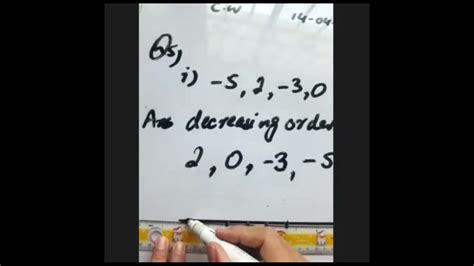 C.W 14-04-
Q5,
i) -5, 2, -3, 0
Ans decreasing order
2, 0, -3, -5